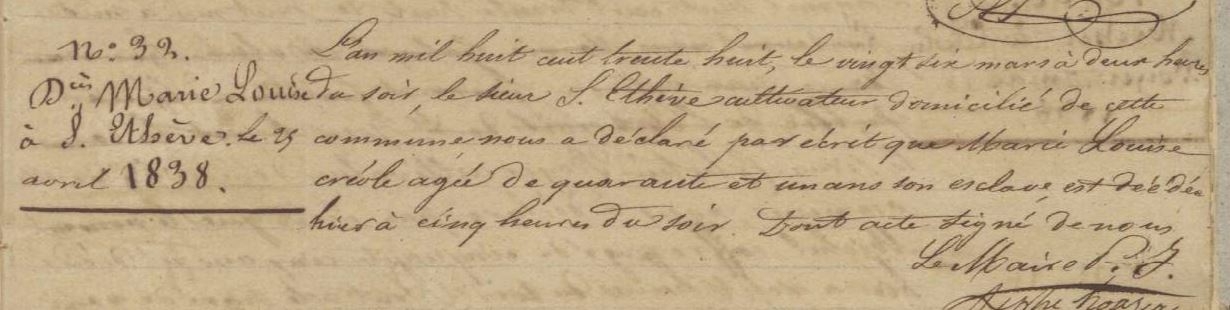 N.o 32.
Dès Marie Louise
à S. Ethève. le 25
avril 1838.
L'an mil huit cent trente huit, le vingt six mars à deux heures
du soir, le sieur S. Ethève cultivateur domicilié de cette
commune nous a déclaré par écrit que Marie Louise
créole agée de quarante et un ans son esclave, est décédée
hier à cinq heures du soir. Dont acte signé de nous
Le Maire P. J.